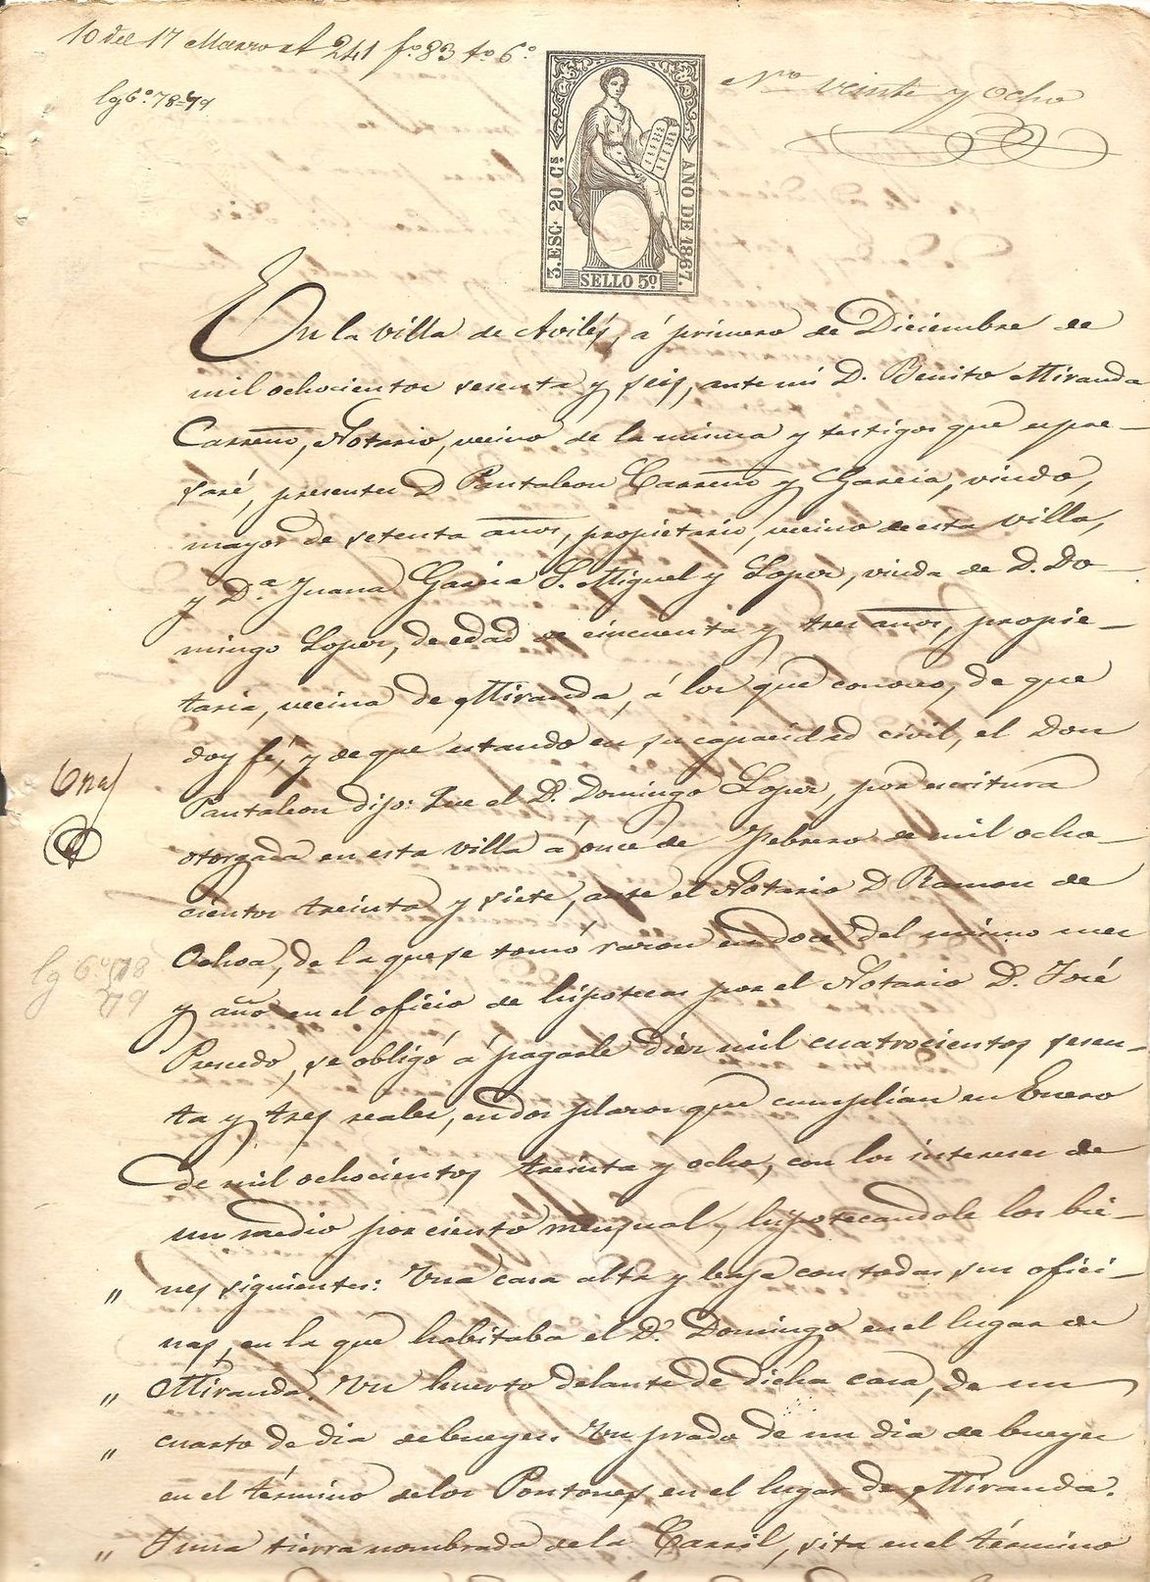 10 del 17 Marzo al 241 fº 83 tº 6º
lgº 6º 78-79
Nro veinte y ocho
3. ESC. 20 Cs
AÑO DE 1867.
SELLO 5º
En la villa de Avilés, á primero de Diciembre de
mil ochocientos sesenta y seis, ante mi D. Benito Miranda
Carreño, Notario, vecino de la misma y testigos que espre-
saré, presentes D Pantaleon Carreño y Garcia, viudo,
mayor de setenta años, propietario, vecino de esta villa,
y D.ª Juana Garcia S. Miguel y Lopez, viuda de D. Do-
mingo Lopez, de edad de cincuenta y tres años, propie-
taria, vecina de Miranda, á los que conozco, de que
doy fé, y de que estando en su capacidad civil, el Don
Pantaleon dijo: Que el D. Domingo Lopez, por escritura
otorgada en esta villa á once de Febrero de mil ocho-
cientos treinta y siete, ante el Notario D Ramon de
Ochoa, de la que se tomó razon en doce del mismo mes
y año en el oficio de hipotecas por el Notario D. José
Presedo, se obligó á pagarle diez mil cuatrocientos sesen-
ta y tres reales, en dos plazos que cumplian en Enero
de mil ochocientos treinta y ocho, con los intereses de
un medio por ciento mensual, hipotecandole los bie-
" nes siguientes: Una casa alta y baja con todas sus ofici-
nas, en la que habitaba el D. Domingo en el lugar de
" Miranda. Un huerto delante de dicha casa, de un
" cuarto de dia de bueyes. Un prado de un dia de bueyes
en el término de los Pontones en el lugar de Miranda.
" Y una tierra nombrada de la Carril, sita en el término
Una
lg 6º 78
79